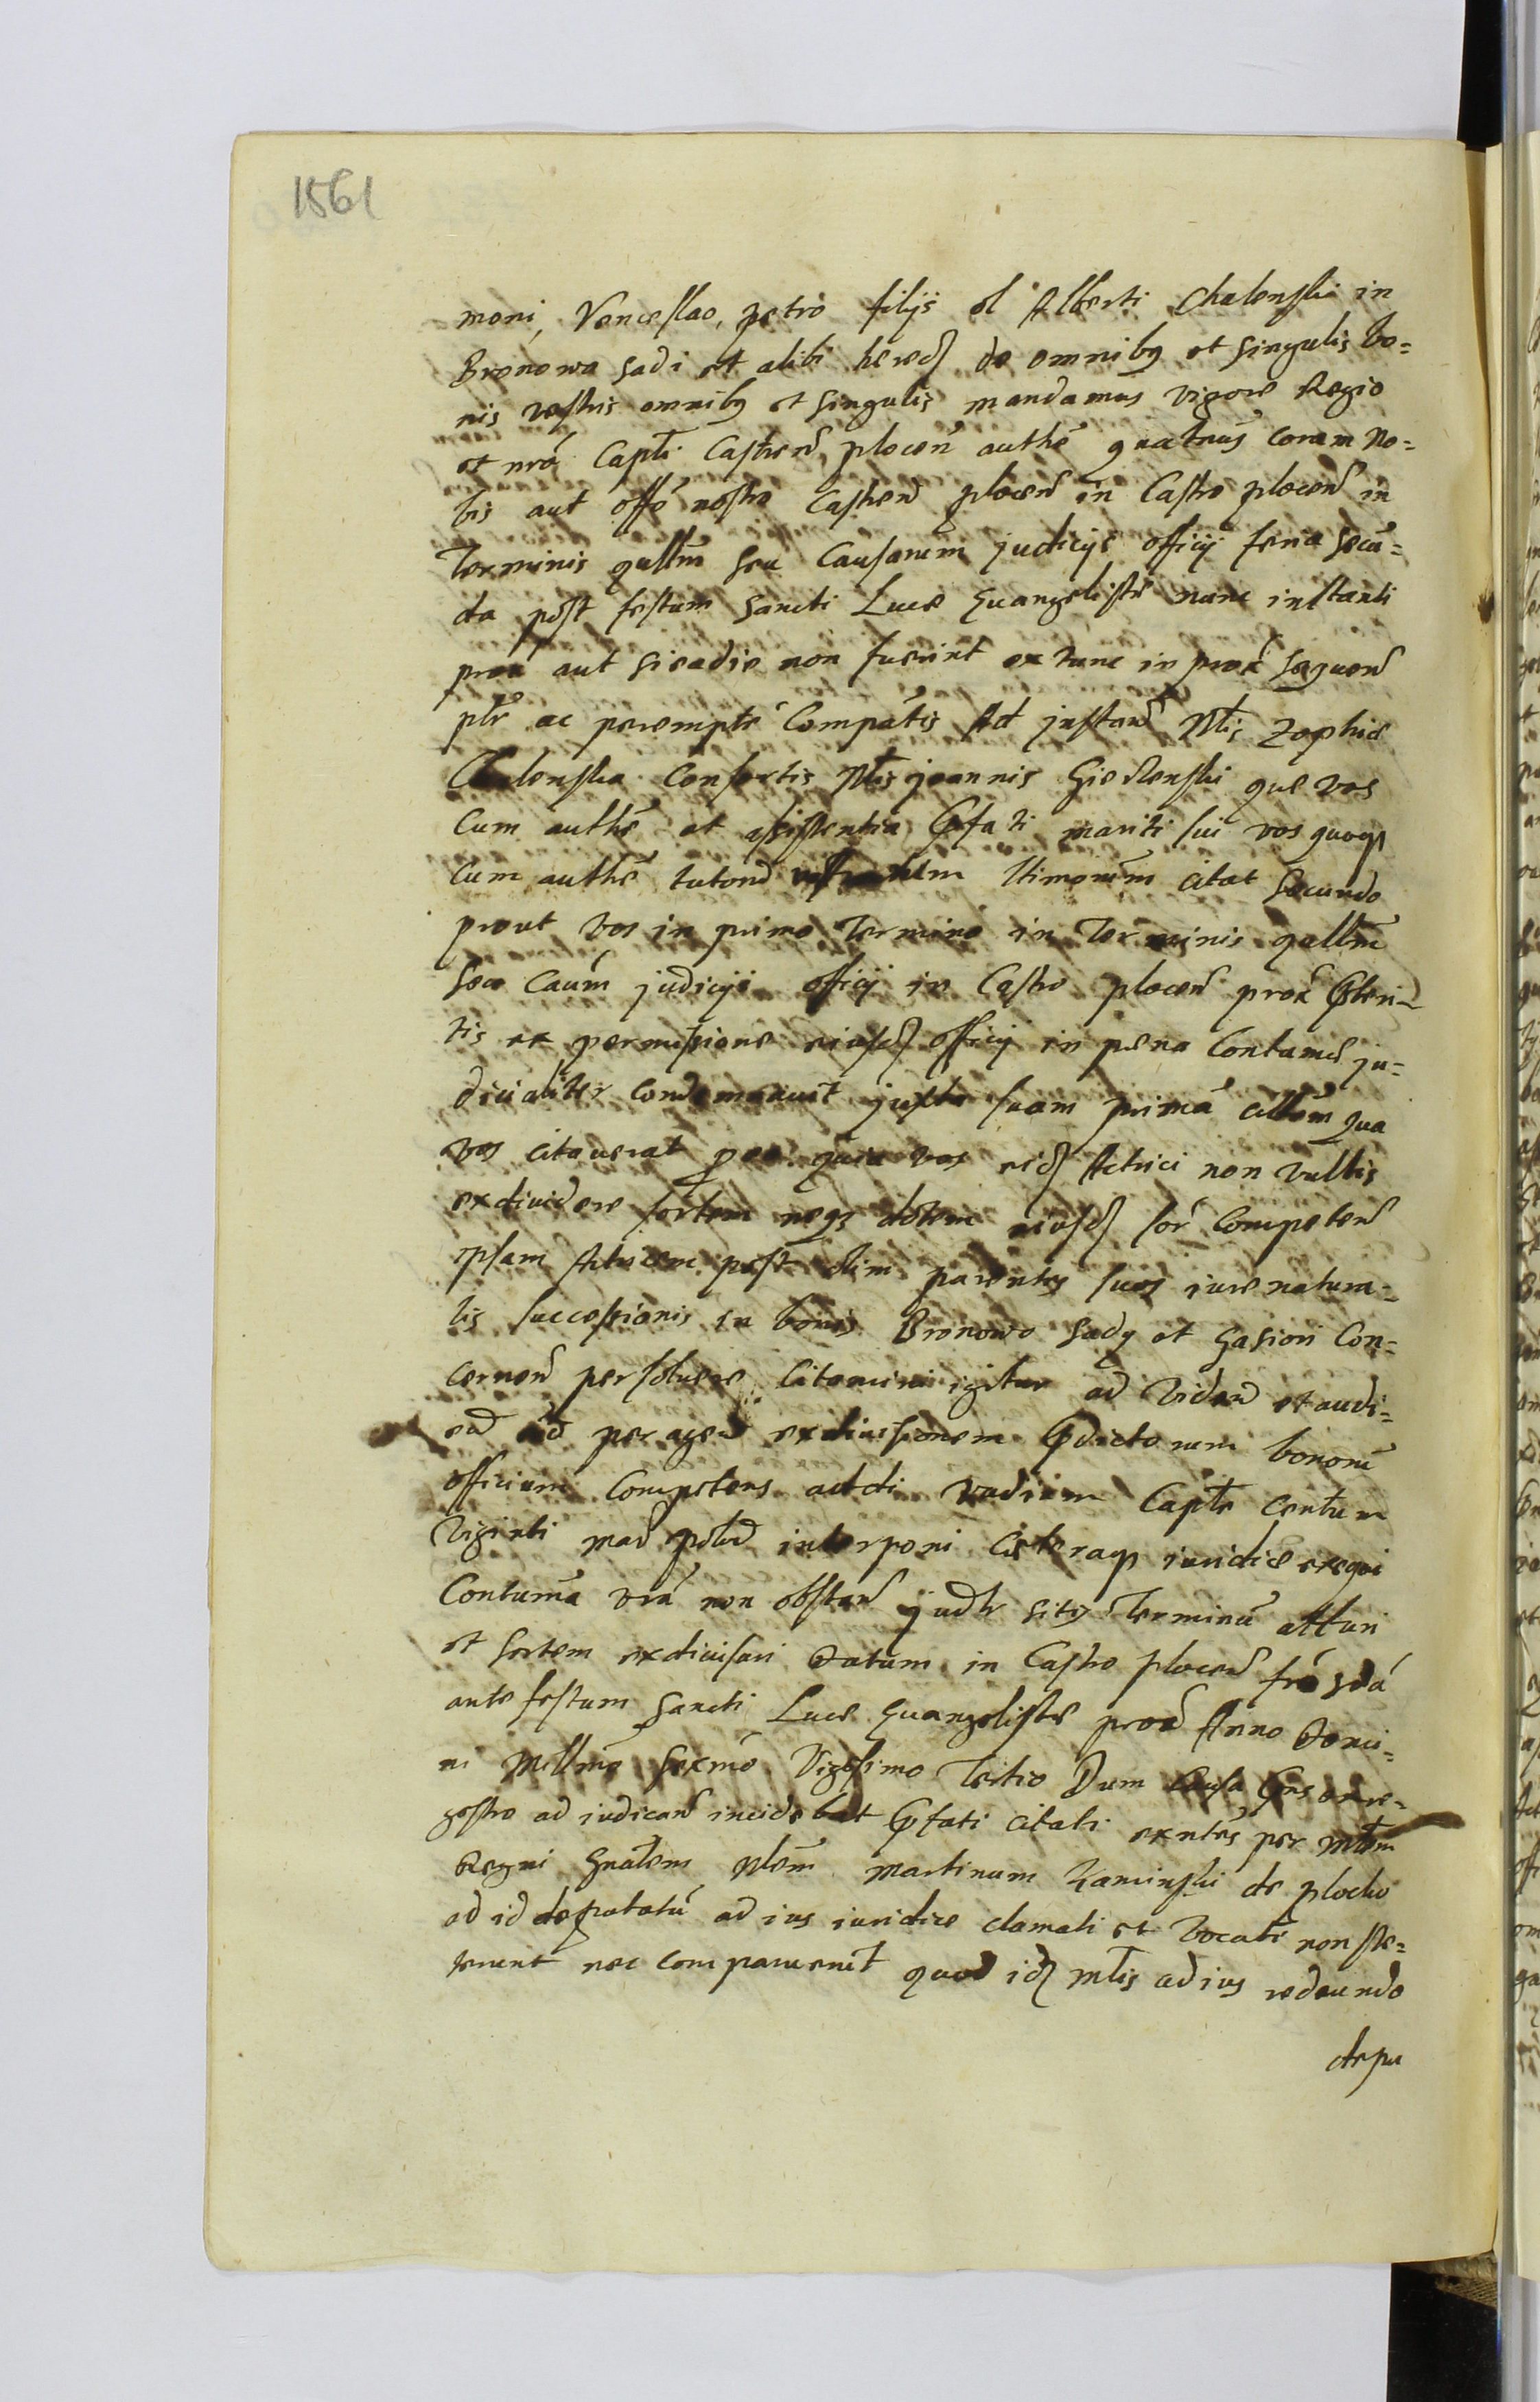 1561
moni, Venceslao, petro filijs ol Alberti Chalenski in
Bronowo Sadi et alibi hered de omnibq et singulis bo=
nis vestris omnibq et singulis mandamus vigore Regio
et nrã Capti Castren plocen authe quatnus coram No=
bis aut offo nostro Castren plocen in Castro plocen in
Terminis qullm seu Causarum judicijs officij feria secu=
da post festum Sancti Luce Euangeliste nunc instanti
prox aut si eadie non fuerint ex tunc in prox sequen
plr ac perempte Compatis Ad jnstan Nlis Zophie
Chalenska Consortis Nlis joannis Gierlenski que vos
Cum authe et assistentia pfati mariti sui vos quoqȝ
Cum authe tutorũ ltimorum citat secundo
prout vos in primo Termino in Terminis qullm
seu Caurum judicijs officij in Castro plocen prox pteri-
tis ex permissione eiusd officij in pena Contumâ ju=
dicialiter condemnauit juxta suam primã cittom qua
vos citauerat pro eo quia vos eid Actrici non vultis
exdiuidere sortem neqȝ dotem eiusd sor Competen
ipsam Actricem post olim parentes suos iure natura=
lis successionis in bonis Bronowo Sady et Gasiori Con=
cernen persoluere Citamini igitur ad viden et audi=
en ad peragen exdiuisionem pdictorum bonorũ
officium Competens addi vadium Capte centum
viginti mar polo interponi Ceteraqȝ iuridice exequi
Contumã vrã non obstan judlr sitis Terminũ atturi
et sortem exdiuisuri Datum in Castro plocen frã 2dã
ante festum Sancti Luce Euangeliste prox Anno Domi=
ni Millmo Sexmo Vigesimo Tertio Dum Causa pns ex re-
gestro ad iudican incidebat pfati citati exntes per Mlem
Regni Gnalem Nlem Martinum Kaminski de plocko
ad id deputatũ ad ius iuridice clamati et vocati non ste=
terunt nec comparuerunt quod id Mlis ad ius redeundo
depu